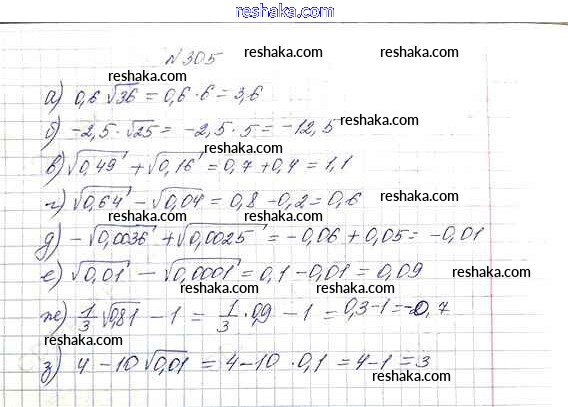 reshaka.com
№305 reshaka.com
reshaka.com
а) 0,6 √36 = 0,6 · 6 = 3,6
reshaka.com
б) -2,5 · √25 = -2,5 · 5 = -12,5
reshaka.com
в) √0,49 + √0,16 = 0,7 + 0,4 = 1,1
reshaka.com
г) √0,64 - √0,04 = 0,8 - 0,2 = 0,6
reshaka.com
reshaka.com
д) -√0,0036 + √0,0025 = -0,06 + 0,05 = -0,01
reshaka.com
е) √0,01 - √0,0001 = 0,1 - 0,01 = 0,09
reshaka.com
reshaka.com
ж) 1/3 √0,81 - 1 = 1/3 · 0,9 - 1 = 0,3 - 1 = -0,7
reshaka.com
reshaka.com
з) 4 - 10 √0,01 = 4 - 10 · 0,1 = 4 - 1 = 3
reshaka.com
reshaka.com